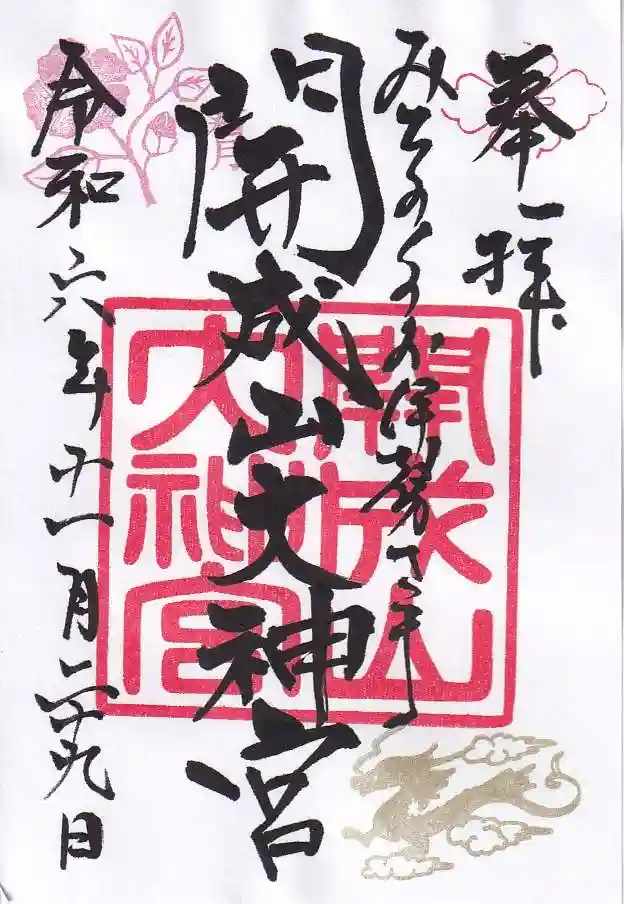 奉拝
みちのくのお伊勢さま
開成山大神宮
令和六年十一月二十九日
開成山
大神宮